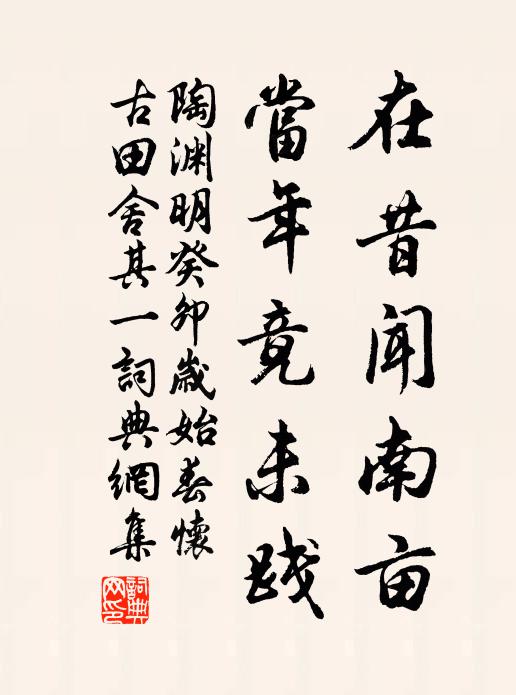 在昔闻南亩
當年竟未践
陶渊明癸卯歲始春懷
古田舍其一詞典網集
詞典网印